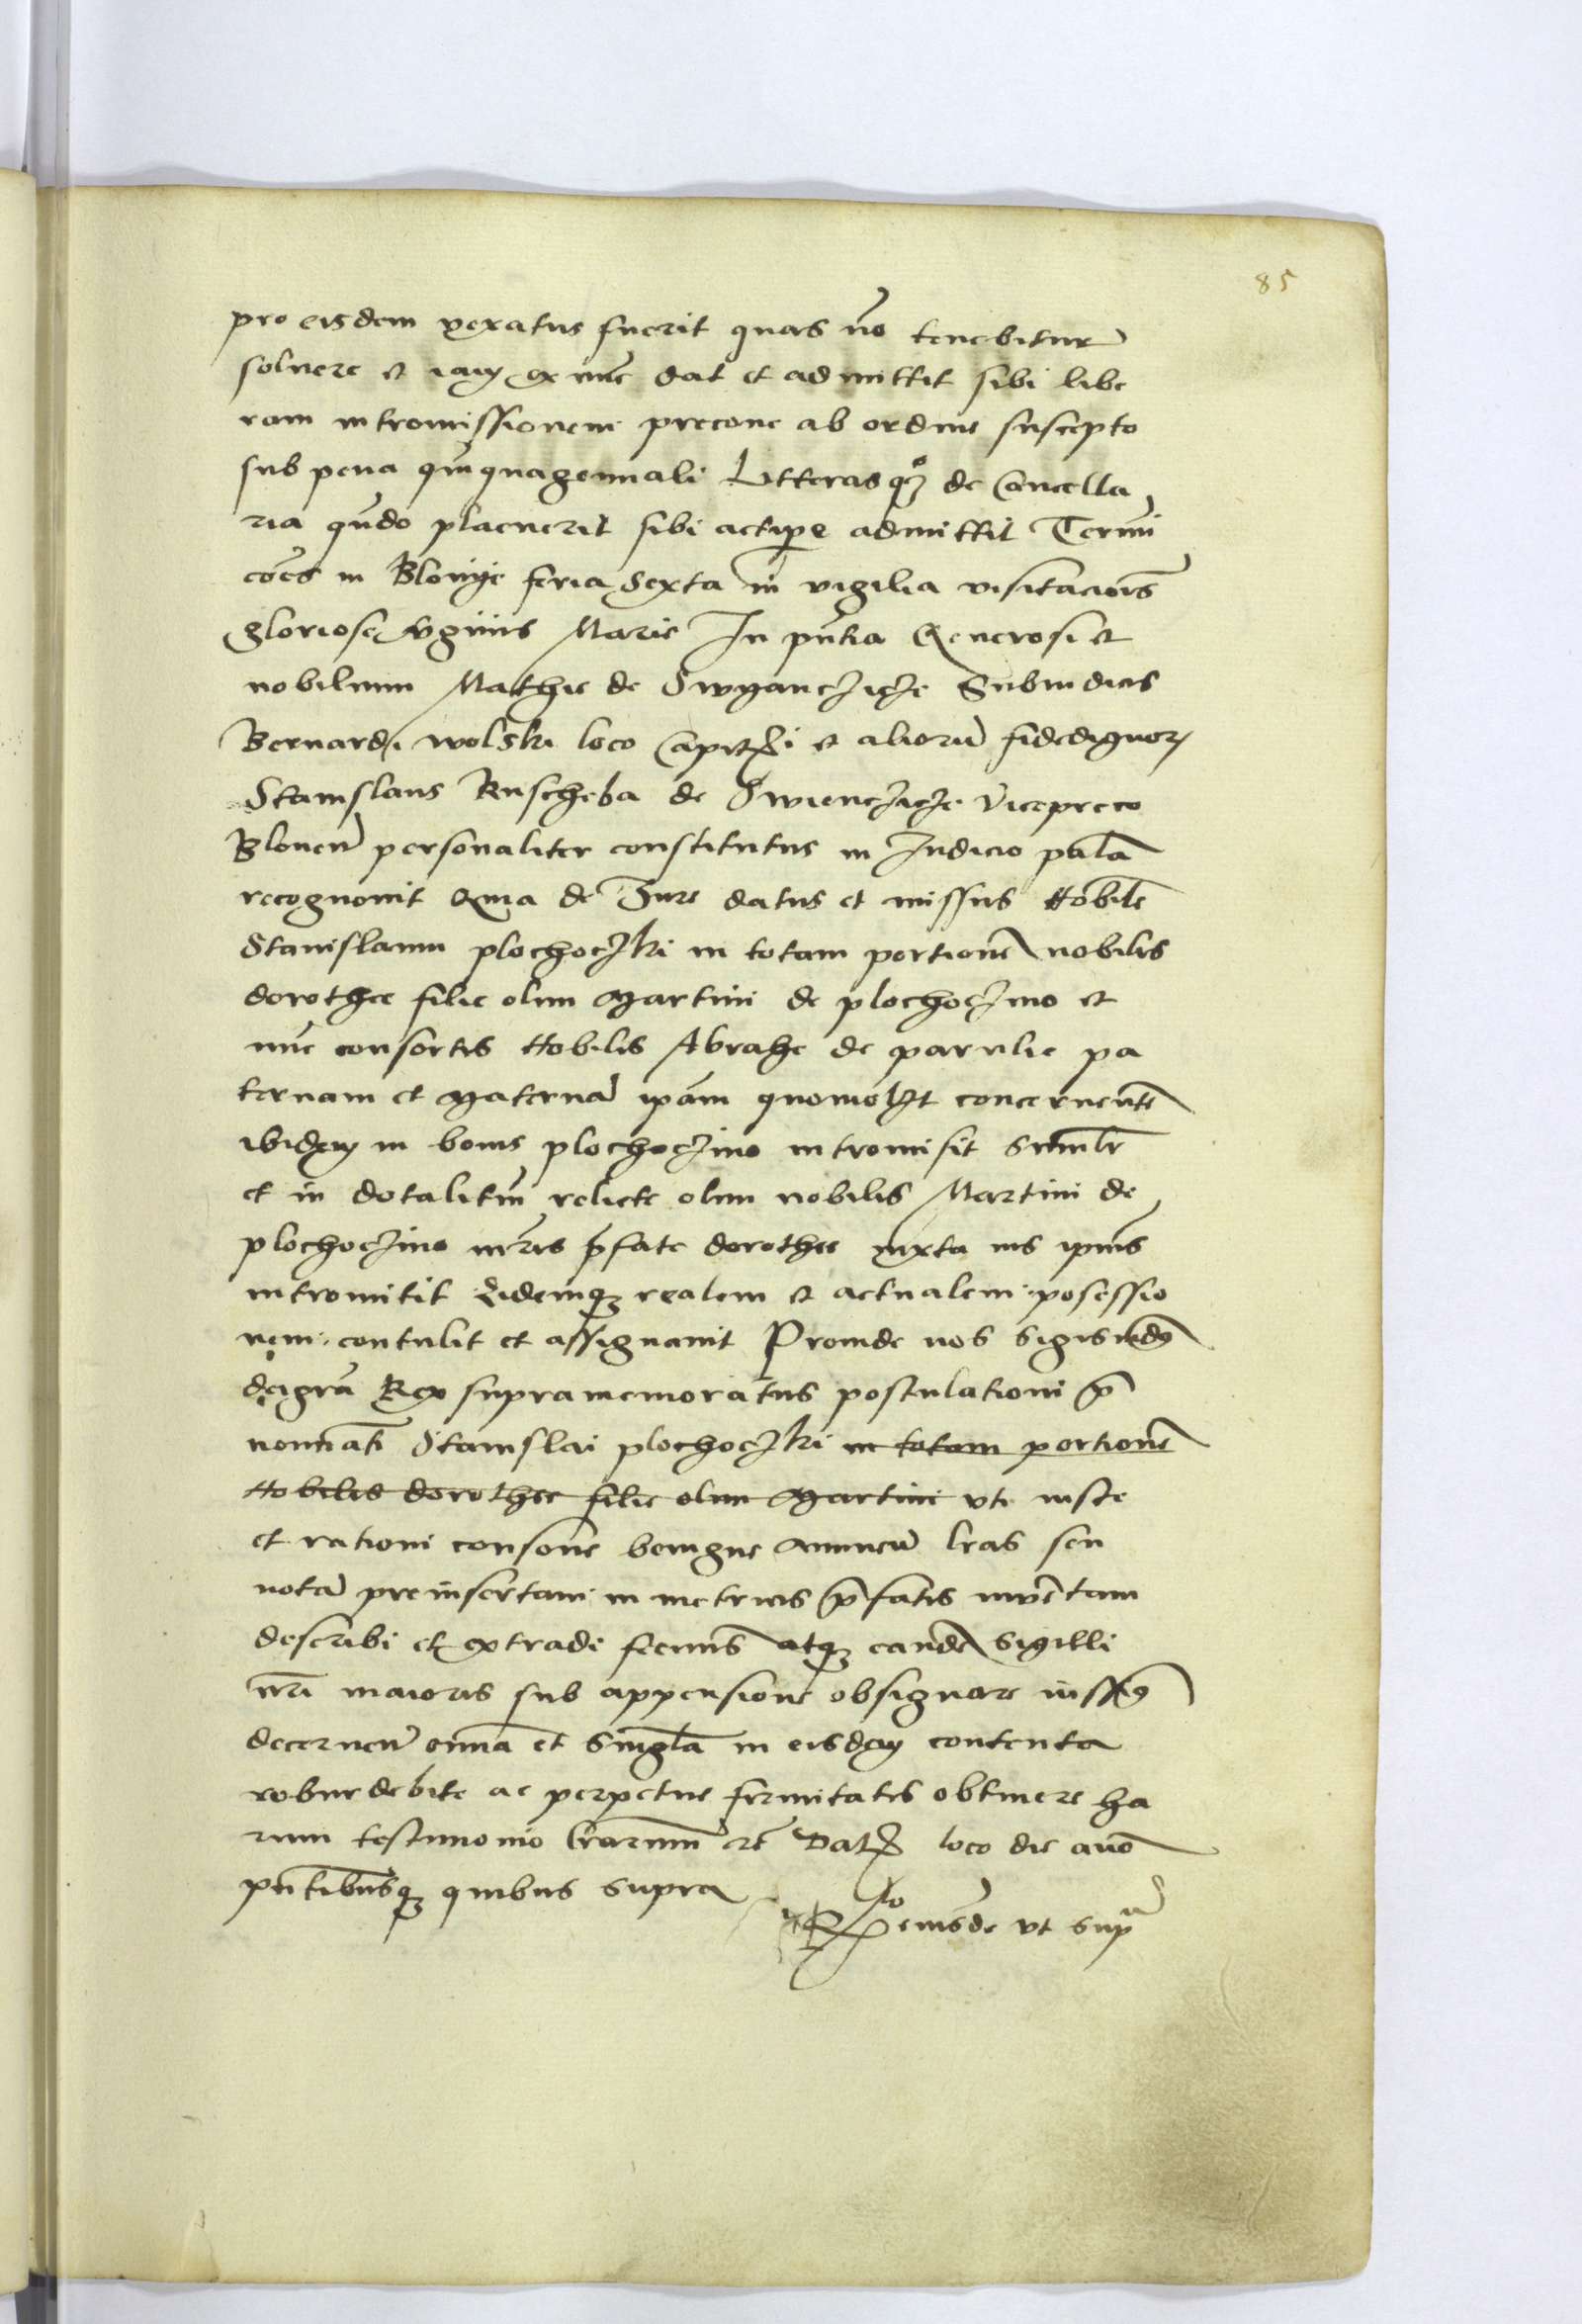 85
pro eisdem vexatus fuerit quas no tenebitur
soluere et iam ex nuc dat et admittit sibi libe
ram intromissionem precone ab ordine suscepto
sub pena quinquagennali Litterasq3 de Cancella
ria qundo placuerit sibi accipe admittit Termi
coes in Blonye feria Sexta in vigilia visitacois
gloriose vginis Marie In pntia Generosi et
nobilium Mathie de Swyanczicze Subiudicis
Bernardi wolski loco Capit i et alioru fidedignor
Stanislaus Ruscheba de Swienczicze Vicepreco
Blonen personaliter constitutus in Iudicio pala
recognouit Quia de Iure datus et missus Nobile
Stanislaum plochoczki in totam portione nobilis
dorothee filie olim Martini de plochoczino et
nuc consortis Nobilis Abrahe de parulie pa
ternam et Materna ipam quomolt concernente
ibidem in bonis plochoczino intromisit Similr
et in dotalitiu relicte olim nobilis Martini de
plochoczino mris pfate dorothee iuxta ius ipius
intromitit Eidemq3 realem et actualem posessio
nem contulit et assignauit Proinde nos Sigismudg
dei gra Rex supramemoratus postulationi p
nominati Stanislai plochoczki in totam portione
Nobilis dorothee filie olim Martini vti iuste
et rationi consone benigne annuen lras seu
nota preinsertam in metricis pfatis inuetam
describi et extradi fecimus atq3 eande Sigilli
nri maioris sub appensione obsignare iussimg
decernen omia et Singla in eisdem contenta
robur debite ac perpetue firmitatis obtinere ha
rum testimonio lrarum etc Dat loco die anno
pntibusq3 quibus supra
Rlo eiusde vt supa